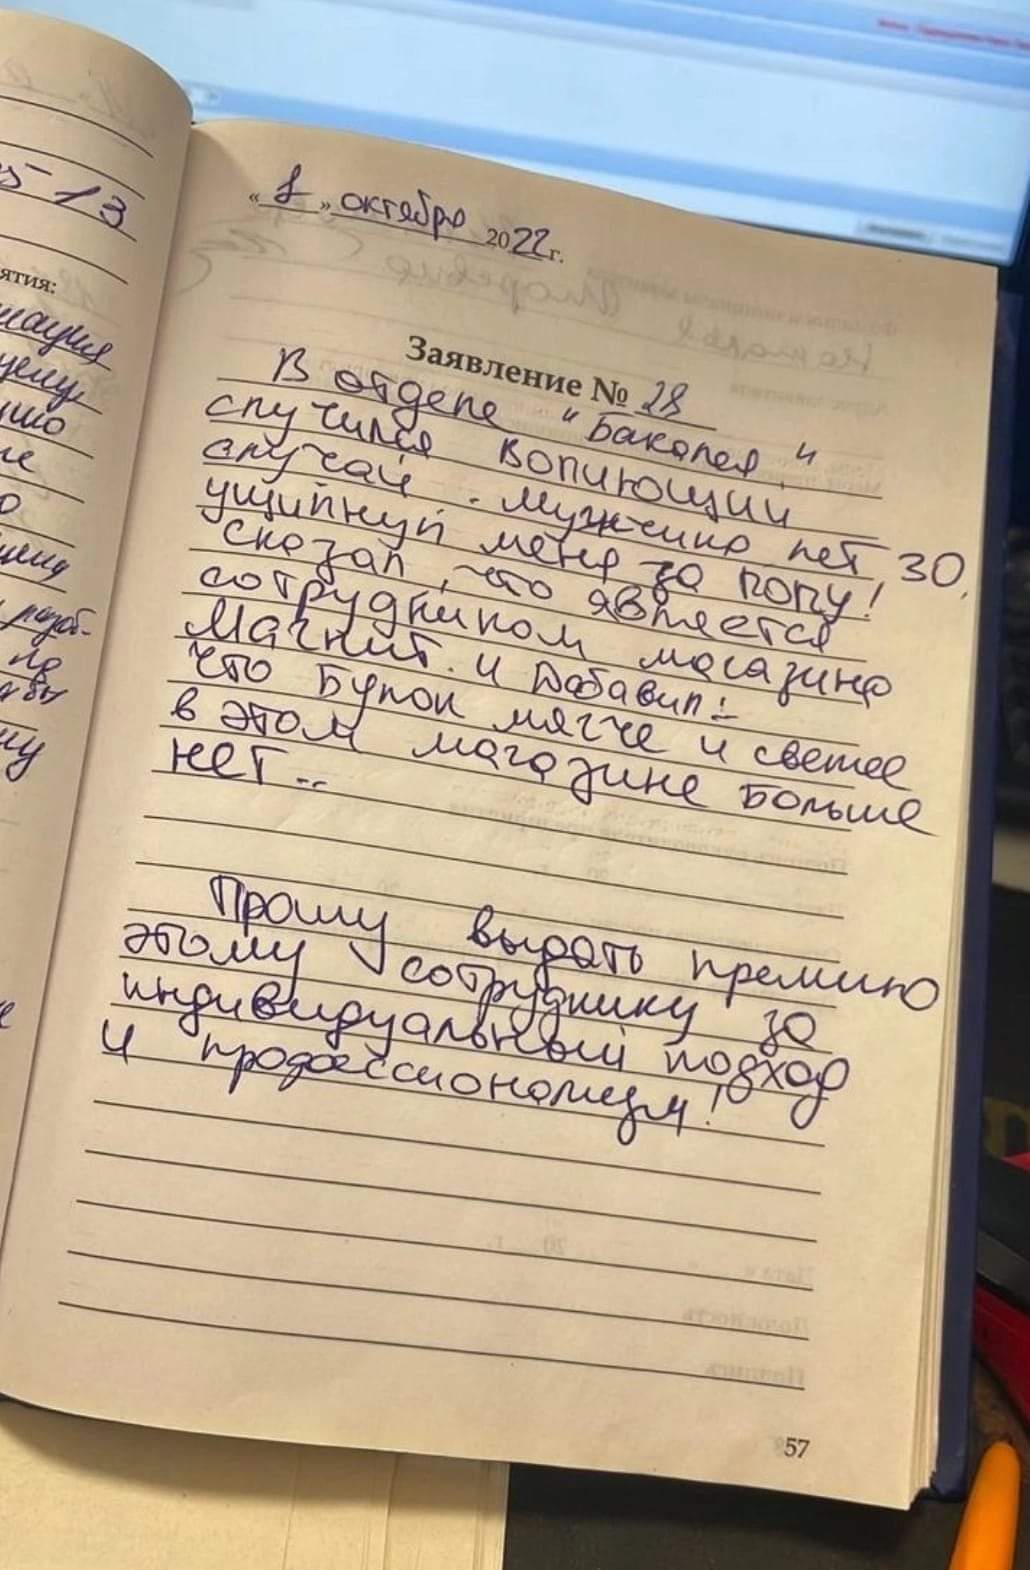 5 13
ятия:
"1" октября 2022 г.
Заявление № 28
В отделе "Бакалея"
случился вопиющий
случай. Мужчина лет 30,
ущипнул меня за попу!
сказал, что является
сотрудником магазина
Магнит. и Добавил:-
что Булок мягче и светее
в этом магазине Больше
нет...
Прошу выдать премию
этому сотруднику за
индивидуальный подход
и профессионализм!
57